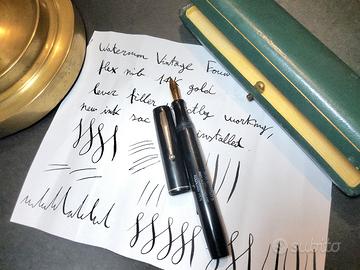 Waterman Vintage Foun
flex nib 14k gold
lever filler ctly working,
new ink sac installed
subito